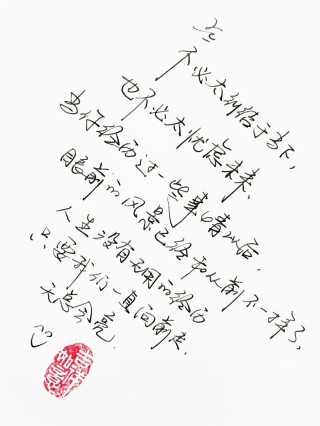 不必太纠结于当下，
也不必太忧虑未来，
当你经历过一些事情以后，
眼前的风景已经和从前不一样了，
人生没有无用的经历
只要我们一直向前走，
天总会亮。